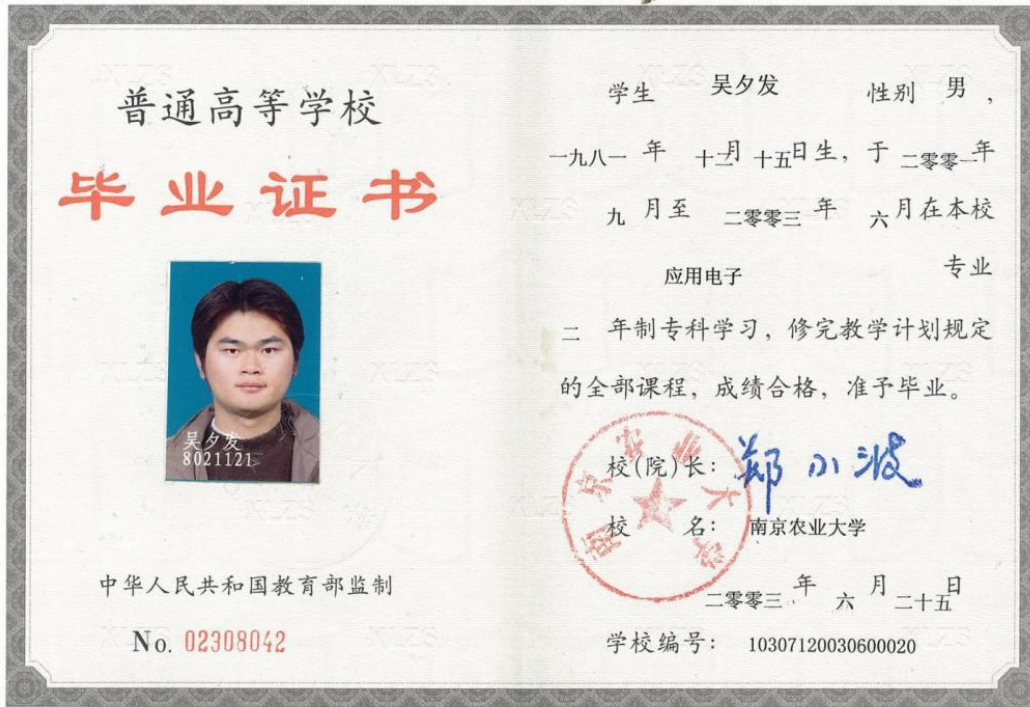 普通高等学校
毕业证书
吴夕发
8021121
中华人民共和国教育部监制
No. 02308042
学生 吴夕发 性别 男，
一九八一 年 十二月 十五日生，于 二零零一年
九 月至 二零零三 年 六月在本校
应用电子 专业
二 年制专科学习，修完教学计划规定
的全部课程，成绩合格，准予毕业。
校(院)长： 郑小波
校 名： 南京农业大学
南京农业大学
二零零三 年 六 月 二十五日
学校编号： 10307120030600020